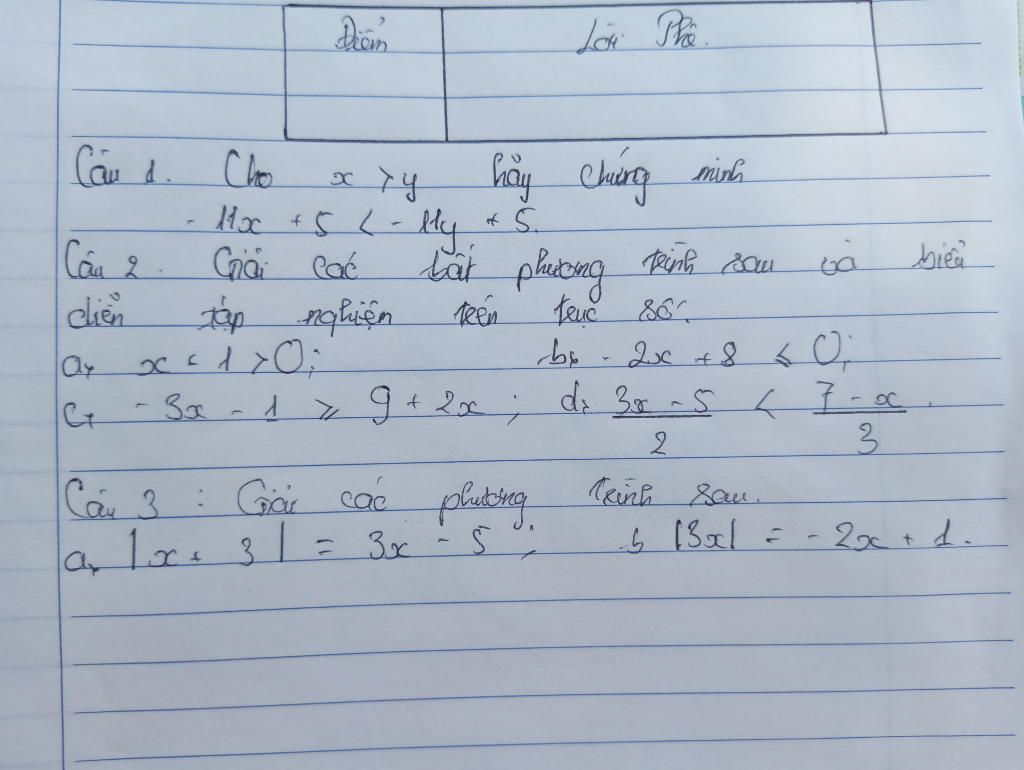 Điểm Lời Phê.
Câu 1. Cho x > y hãy chứng minh
- 11x + 5 < - 11y + 5.
Câu 2. Giải các bất phương trình sau và biểu
diễn tập nghiệm trên trục số:
a, x < 1 > 0; b, - 2x + 8 ≤ 0;
c, - 3x - 1 ≥ 9 + 2x ; d, (3x - 5)/2 < (7 - x)/3.
Câu 3 : Giải các phương trình sau.
a, |x + 3| = 3x - 5 ; b |3x| = - 2x + 1.